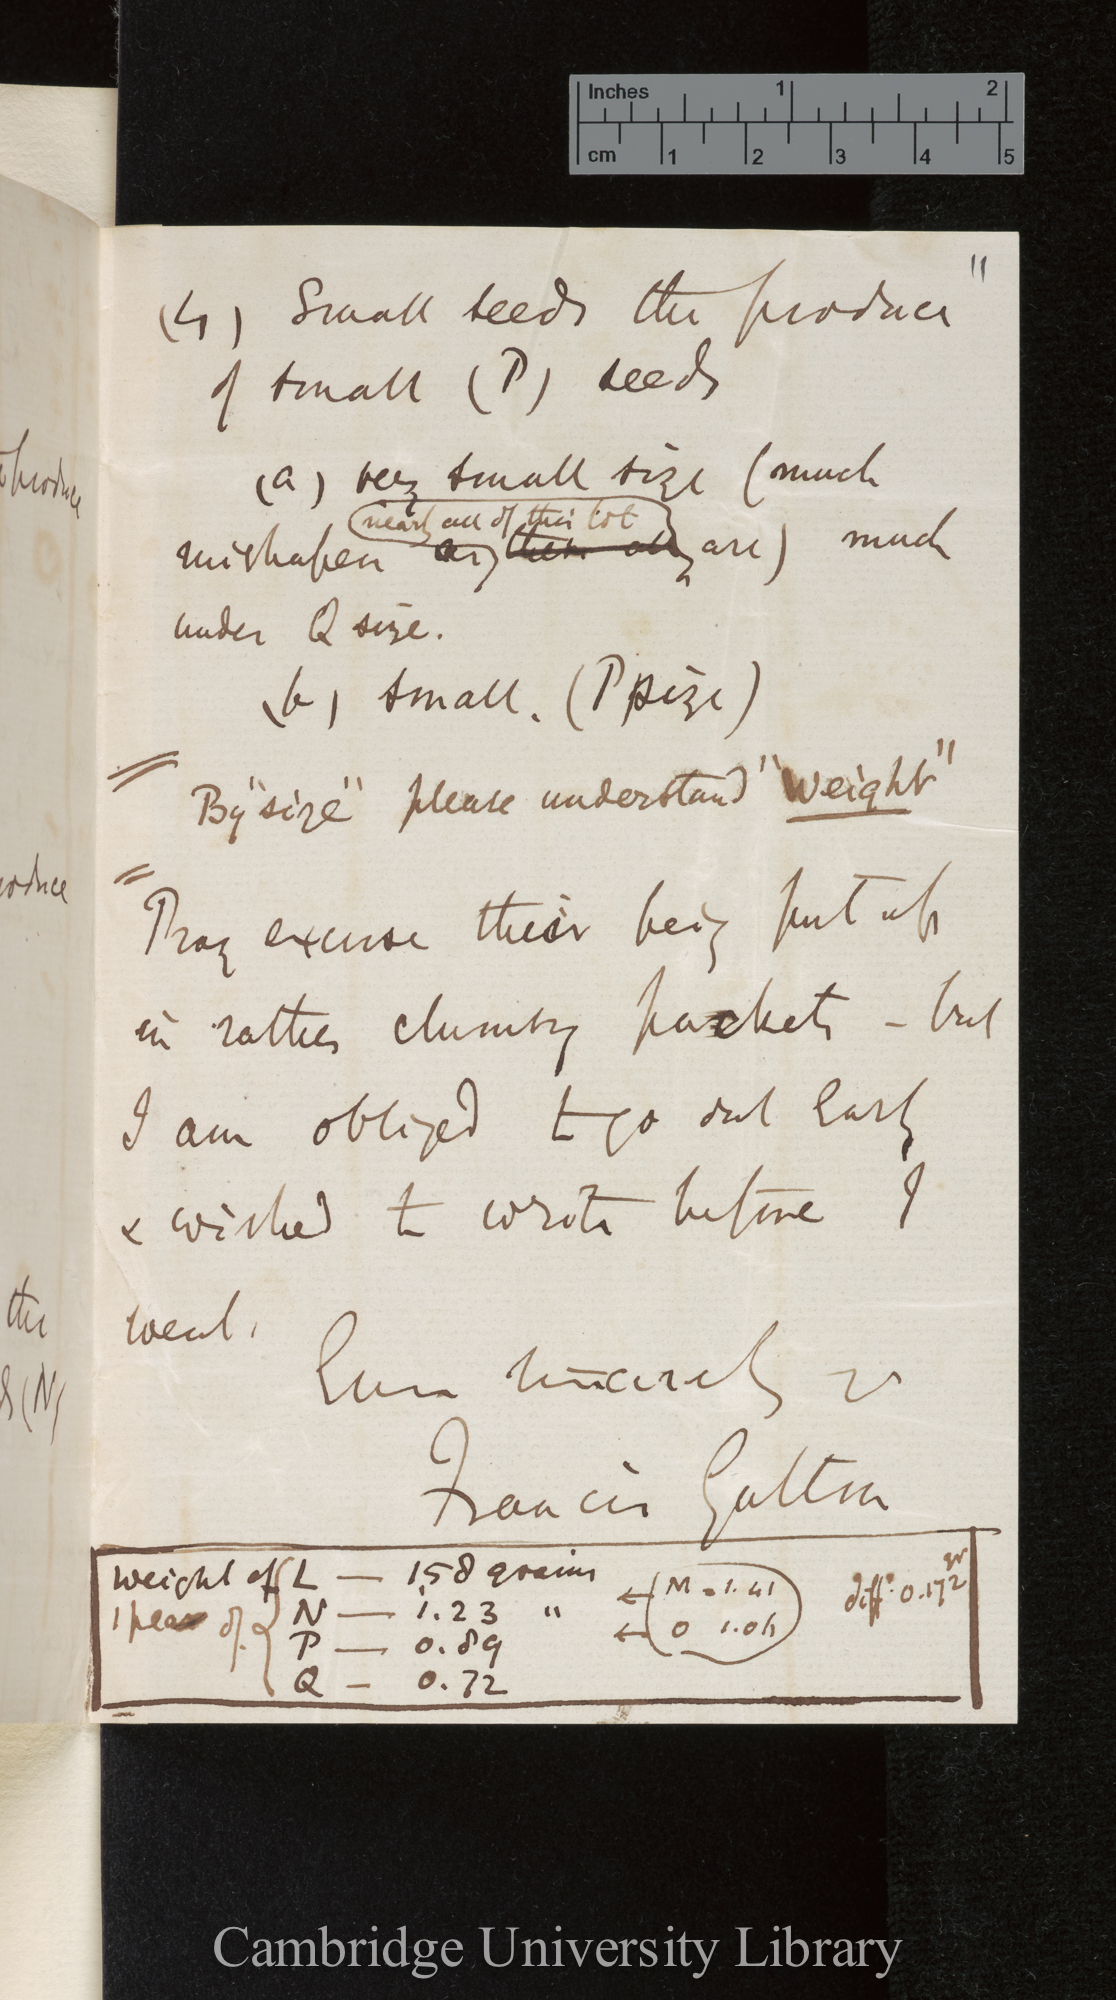 Inches 1 2
cm 1 2 3 4 5
11
(4) Small seeds the produce
of small (P) seeds
(a) very small size (much
nearly all of this lot
mishapen as these all are) much
under Q size.
(b) small. (P size)
By "size" please understand "weight"
Pray excuse their being put up
in rather clumsy packets – but
I am obliged to go out early
& wished to write before I
went.
Ever sincerely yrs
Francis Galton
weight of L — 1.58 grains
1 pea of N — 1.23 "
P — 0.89
Q – 0.72
M = 1.41
O 1.06
diffce 0.172 gr
produce
produce
the
(N)
Cambridge University Library